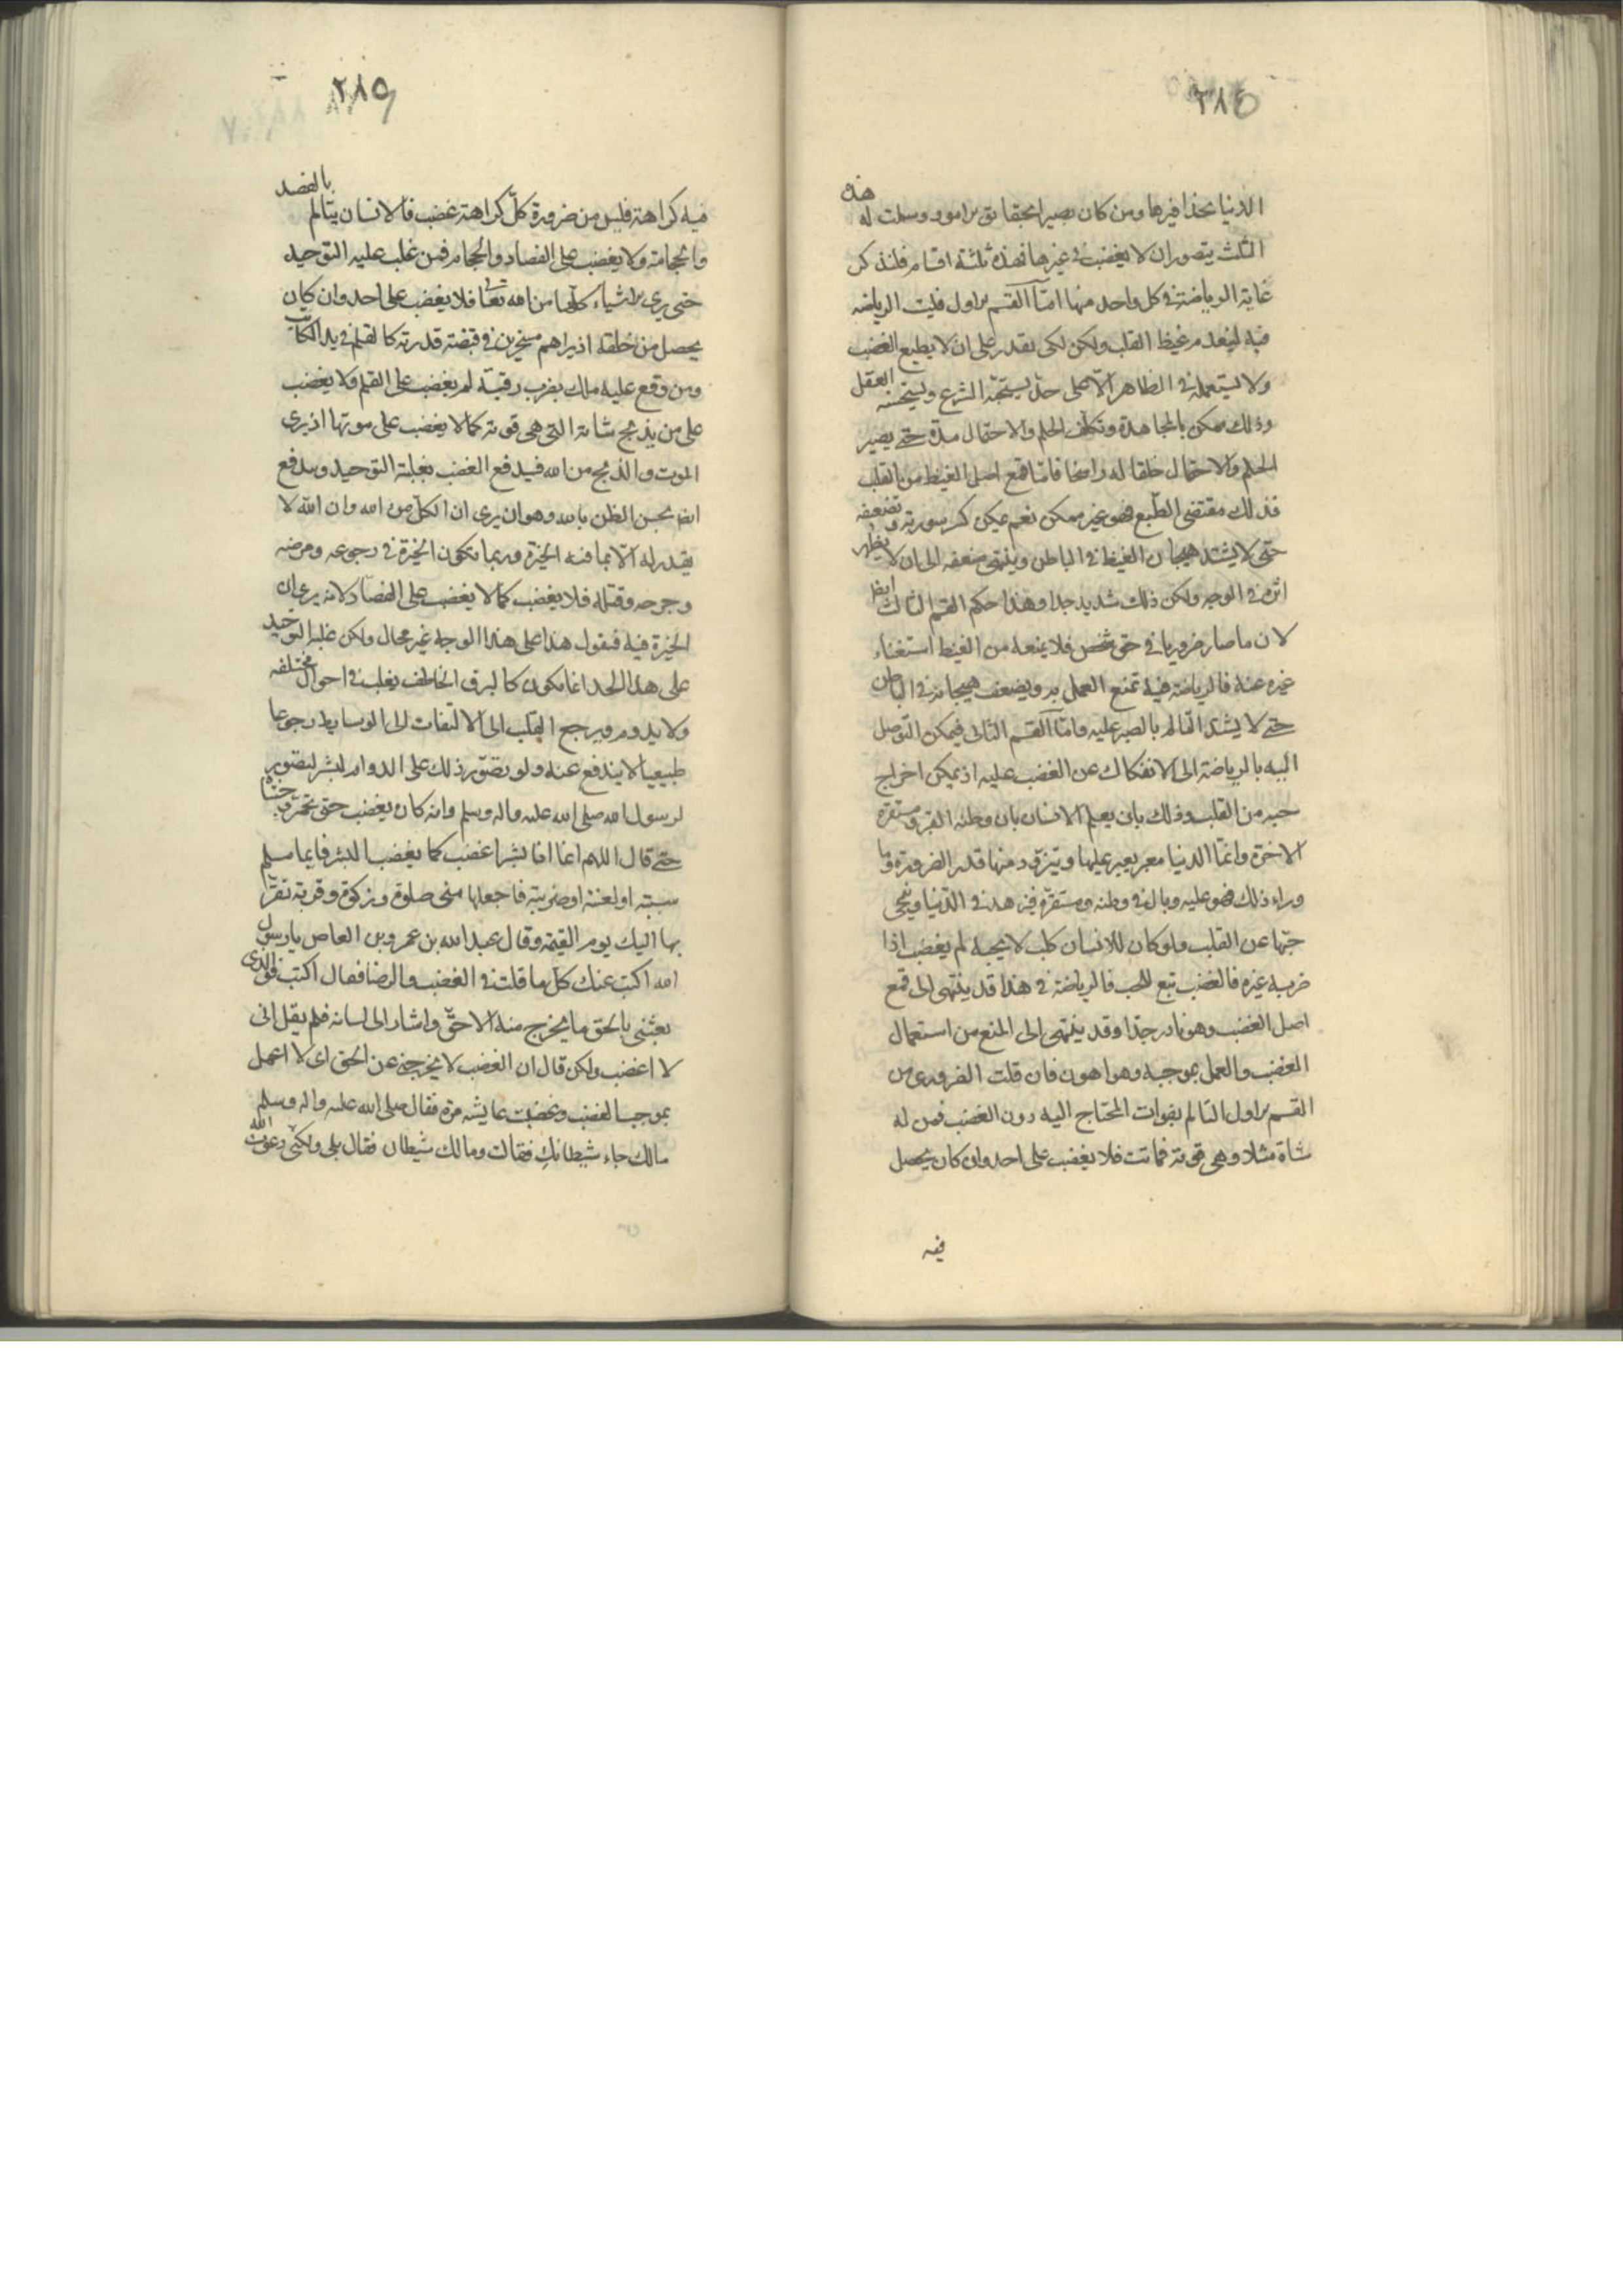 ٢٨٤
الدنيا بحذافيرها ومن كان بصيرا بحقايق الامور وسلمت له هذه
الثلث يتصور ان لا يغضب في غيرها فهذه ثلثة اقسام فلنذكر
غاية الرياضة في كل واحد منها امّا القسم الاول فليت الرياضه
فيه لينعدم غيظ القلب ولكن لكي يقدر على ان لا يطيع الغضب
ولا يستعمله في الظاهر الّا على حدّ يستحبّه الشرع ويستحسنه العقل
وذلك ممكن بالمجاهدة وتكلّف الحلم والاحتمال مدّة حتى يصير
الحلم والاحتمال خلقا له راسخا فامّا قمع اصل الغيظ من القلب
فذلك مقتضى الطّبع فهو غير ممكن نعم يمكن كسر سورته وتضعيفه
حتى لا يشتد هيجان الغيظ في الباطن وينتهي ضعفه الى ان لا يظهر
اثره في الوجه ولكن ذلك شديد جدا وهذا حكم القسم الثالث ايضا
لان ما صار ضروريا في حق شخص فلا يمنعه من الغيظ استغناء
غيره عنه فالرياضة فيه تمنع العمل به ويضعف هيجانه في الباطن
حتى لا يشتد التالم بالصبر عليه وامّا القسم الثاني فيمكن التوصل
اليه بالرياضة الى الانفكاك عن الغضب عليه اذ يمكن اخراج
حبه من القلب وذلك بان يعلم الانسان بان وطنه القبر ومستقره
الاخرة وانّما الدنيا معبر يعبر عليها ويتزوّد منها قدر الضرورة وما
وراء ذلك فهو عليه وبال في وطنه ومستقرّه فيزهد في الدّنيا ويمحي
حبّها عن القلب ولو كان للانسان كلب لا يحبه لم يغضب اذا
ضربه غيره فالغضب تبع للحب فالرياضة في هذا قد ينتهي الى قمع
اصل الغضب وهو نادر جدّا وقد ينتهي الى المنع من استعمال
الغضب والعمل بموجبه وهو اهون فان قلت الضروري من
القسم الاول التالم بفوات المحتاج اليه دون الغضب فمن له
شاة مثلا وهي قوته فماتت فلا يغضب على احد وان كان يحصل
فيه
٢٨٥
فيه كراهة فليس من ضرورة كلّ كراهة غضب فالانسان يتالم بالفصد
والحجامة ولا يغضب على الفصاد والحجام فمن غلب عليه التوحيد
حتى يرى الاشياء كلّها من الله تعالى فلا يغضب على احد وان كان
يحصل من خلقه اذ يراهم مسخرين في قبضة قدرته كالقلم في يد الكاتب
ومن وقع عليه ملك بضرب رقبته لم يغضب على القلم ولا يغضب
على من يذبح شاته التي هي قوته كما لا يغضب على موتها اذ يرى
الموت والذبح من الله فيدفع الغضب بغلبة التوحيد ويدفع
ايضا بحسن الظن بالله وهو ان يرى ان الكلّ من الله وان الله لا
يقدر له الّا بما فيه الخيرة وربما تكون الخيرة في رجوعه ومرضه
وجرحه وقتله فلا يغضب كما لا يغضب على الفصّاد لانه يرى ان
الخيرة فيه فنقول هذا على هذا الوجه غير محال ولكن غلبة التوحيد
على هذا الحد انما تكون كالبرق الخاطف يغلب في احوال مختلفه
ولا يدوم ويرجع القلب الى الالتفات الى الوسايط رجوعا
طبيعيا لا يندفع عنه ولو تصوّر ذلك على الدوام لبشر لتصور
لرسول الله صلى الله عليه واله وسلم وانه كان يغضب حتى تحمّر وجنتاه
حتى قال اللهم انما انا بشر اغضب كما يغضب البشر فايما مسلم
سببته او لعنته او ضربته فاجعلها منى صلوة وزكوة وقربة تقرّبه
بها اليك يوم القيمة وقال عبدالله بن عمرو بن العاص يا رسول
الله اكتب عنك كلّ ما قلت في الغضب والرضا فقال اكتب فوالذي
بعثني بالحق ما يخرج منه الا حقّ واشار الى لسانه فلم يقل اني
لا اغضب ولكن قال ان الغضب لا يخرجني عن الحق اي لا اعمل
بموجب الغضب وغضبت عايشه مرة فقال صلى الله عليه واله وسلم
مالك جاء شيطانك فقالت ومالك شيطان فقال بلى ولكنّي دعوت الله